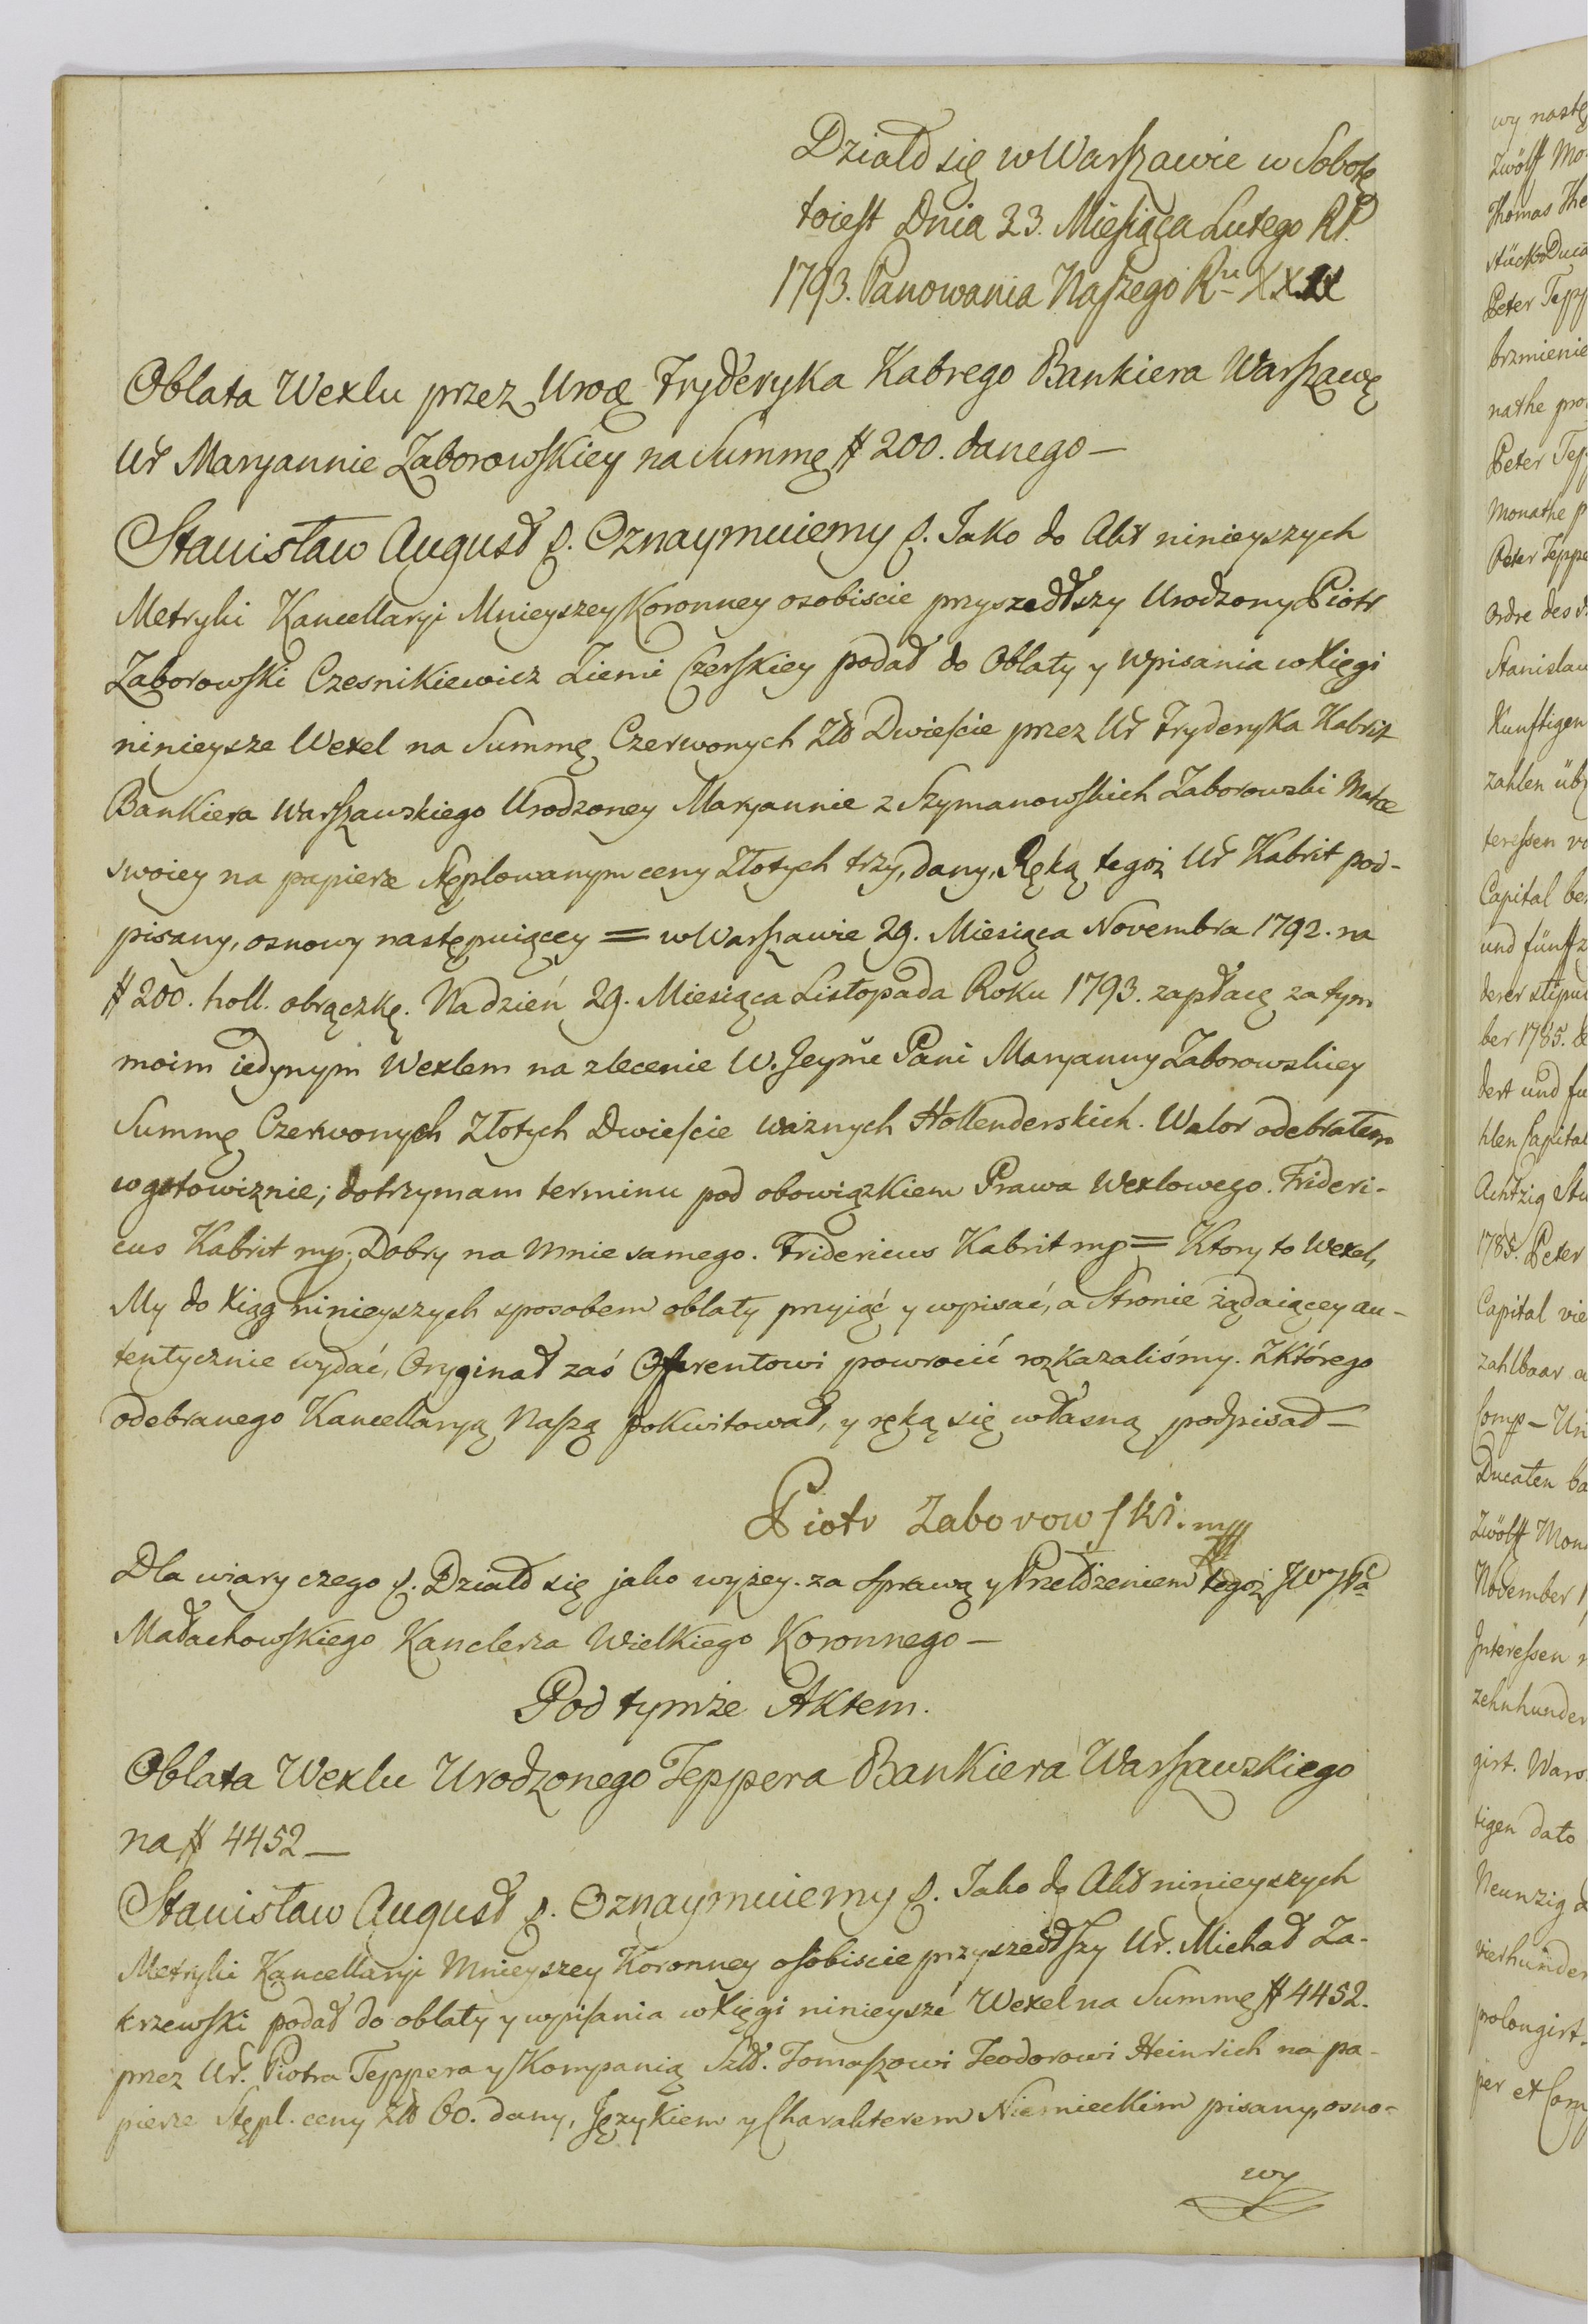 Działo się w Warszawie w Sobotę
toiest Dnia 23. Miesiąca Lutego RP.
1793. Panowania Naszego Ru XXIX
Oblata Wexlu przez Urog Fryderyka Kabrego Bankiera Warszawę
Ur Maryannie Zaborowskiey na Summę # 200. danego —
Stanisław August &. Oznaymuiemy &. Jako do Akt ninieyszych
Metryki Kancellaryi Mnieyszey Koronney osobiscie przyszedłszy Urodzony Piotr
Zaborowski Czesnikiewicz Ziemi Czerskiey podał do Oblaty y wpisania w Xięgi
ninieysze Wexel na Summę Czerwonych Złł Dwieście przez Ur Fryderyka Kabrit
Bankiera Warszawskiego Urodzoney Maryannie z Szymanowskich Zaborowski Matce
swoiey na papierze Stęplowanym ceny Złotych trzy, dany, Ręką tegoż Ur Kabrit pod-
pisany, osnowy następuiącey = w Warszawie 29. Miesiąca Novembra 1792. na
# 200. holl. obrączkę. Na dzień 29. Miesiąca Listopada Roku 1793. zapłacę za tym
moim iedynym Wexlem na zlecenie W. Jeymć Pani Maryanny Zaborowskiey
Summę Czerwonych Złotych Dwieście ważnych Hollenderskich. Walor odebrałem
w gotowiznie; dotrzymam terminu pod obowiązkiem Prawa Wexlowego. Frideri-
cus Kabrit mp. Dobry na mnie samego. Fridericus Kabrit mp = Ktory to Wexel,
My do Xiąg ninieyszych sposobem oblaty przyiąć y wpisać, a Stronie żądaiącey au-
tentycznie wydać, Oryginał zaś Offerentowi powrocić rozkazaliśmy. Z którego
odebranego Kancellaryą Naszą pokwitował, y ręką się własną podpisał —
Piotr Zaborowski. mp
Dla wiary czego &. Działo się jako wyżey. za sprawą y Przełżeniem tegoż
Małachowskiego Kanclerza Wielkiego Koronnego —
Pod tymże Aktem.
Oblata Wexlu Urodzonego Teppera Bankiera Warszawskiego
na # 4452 —
Stanisław August &. Oznaymuiemy &. Jako do Akt ninieyszych
Metryki Kancellaryi Mnieyszey Koronney osobiscie przyszedłszy Ur. Michał Za-
krzewski podał do oblaty y wpisania w Xięgi ninieysze Wexel na Summę # 4452.
przez Ur. Piotra Teppera y Kompanią Szl. Tomaszowi Teodorowi Heinrich na pa-
pierze Stępl. ceny Złł 60. dany, Językiem y Charakterem Niemieckim pisany, osno-
wy
wy nastę
Zwölff Mo
Thomas The
stück Duca
Peter Tepp
brzmienie
nathe pro
Peter Tep
Monathe p
Peter Teppe
Ordre des
Stanislau
Künftigen
zahlen üb
teressen vo
Capital be
und fünffz
derer stipul
ber 1785.
dert und fu
hlen Capital
Achtzig Stu
1785. Peter
Capital vie
zahlbaar a
Comp —
Ducaten ba
Zwölff Mon
November 1
Interessen
zehnhunder
girt. Wars
tigen dato
Neunzig
vierhunder
prolongirt.
per et Com